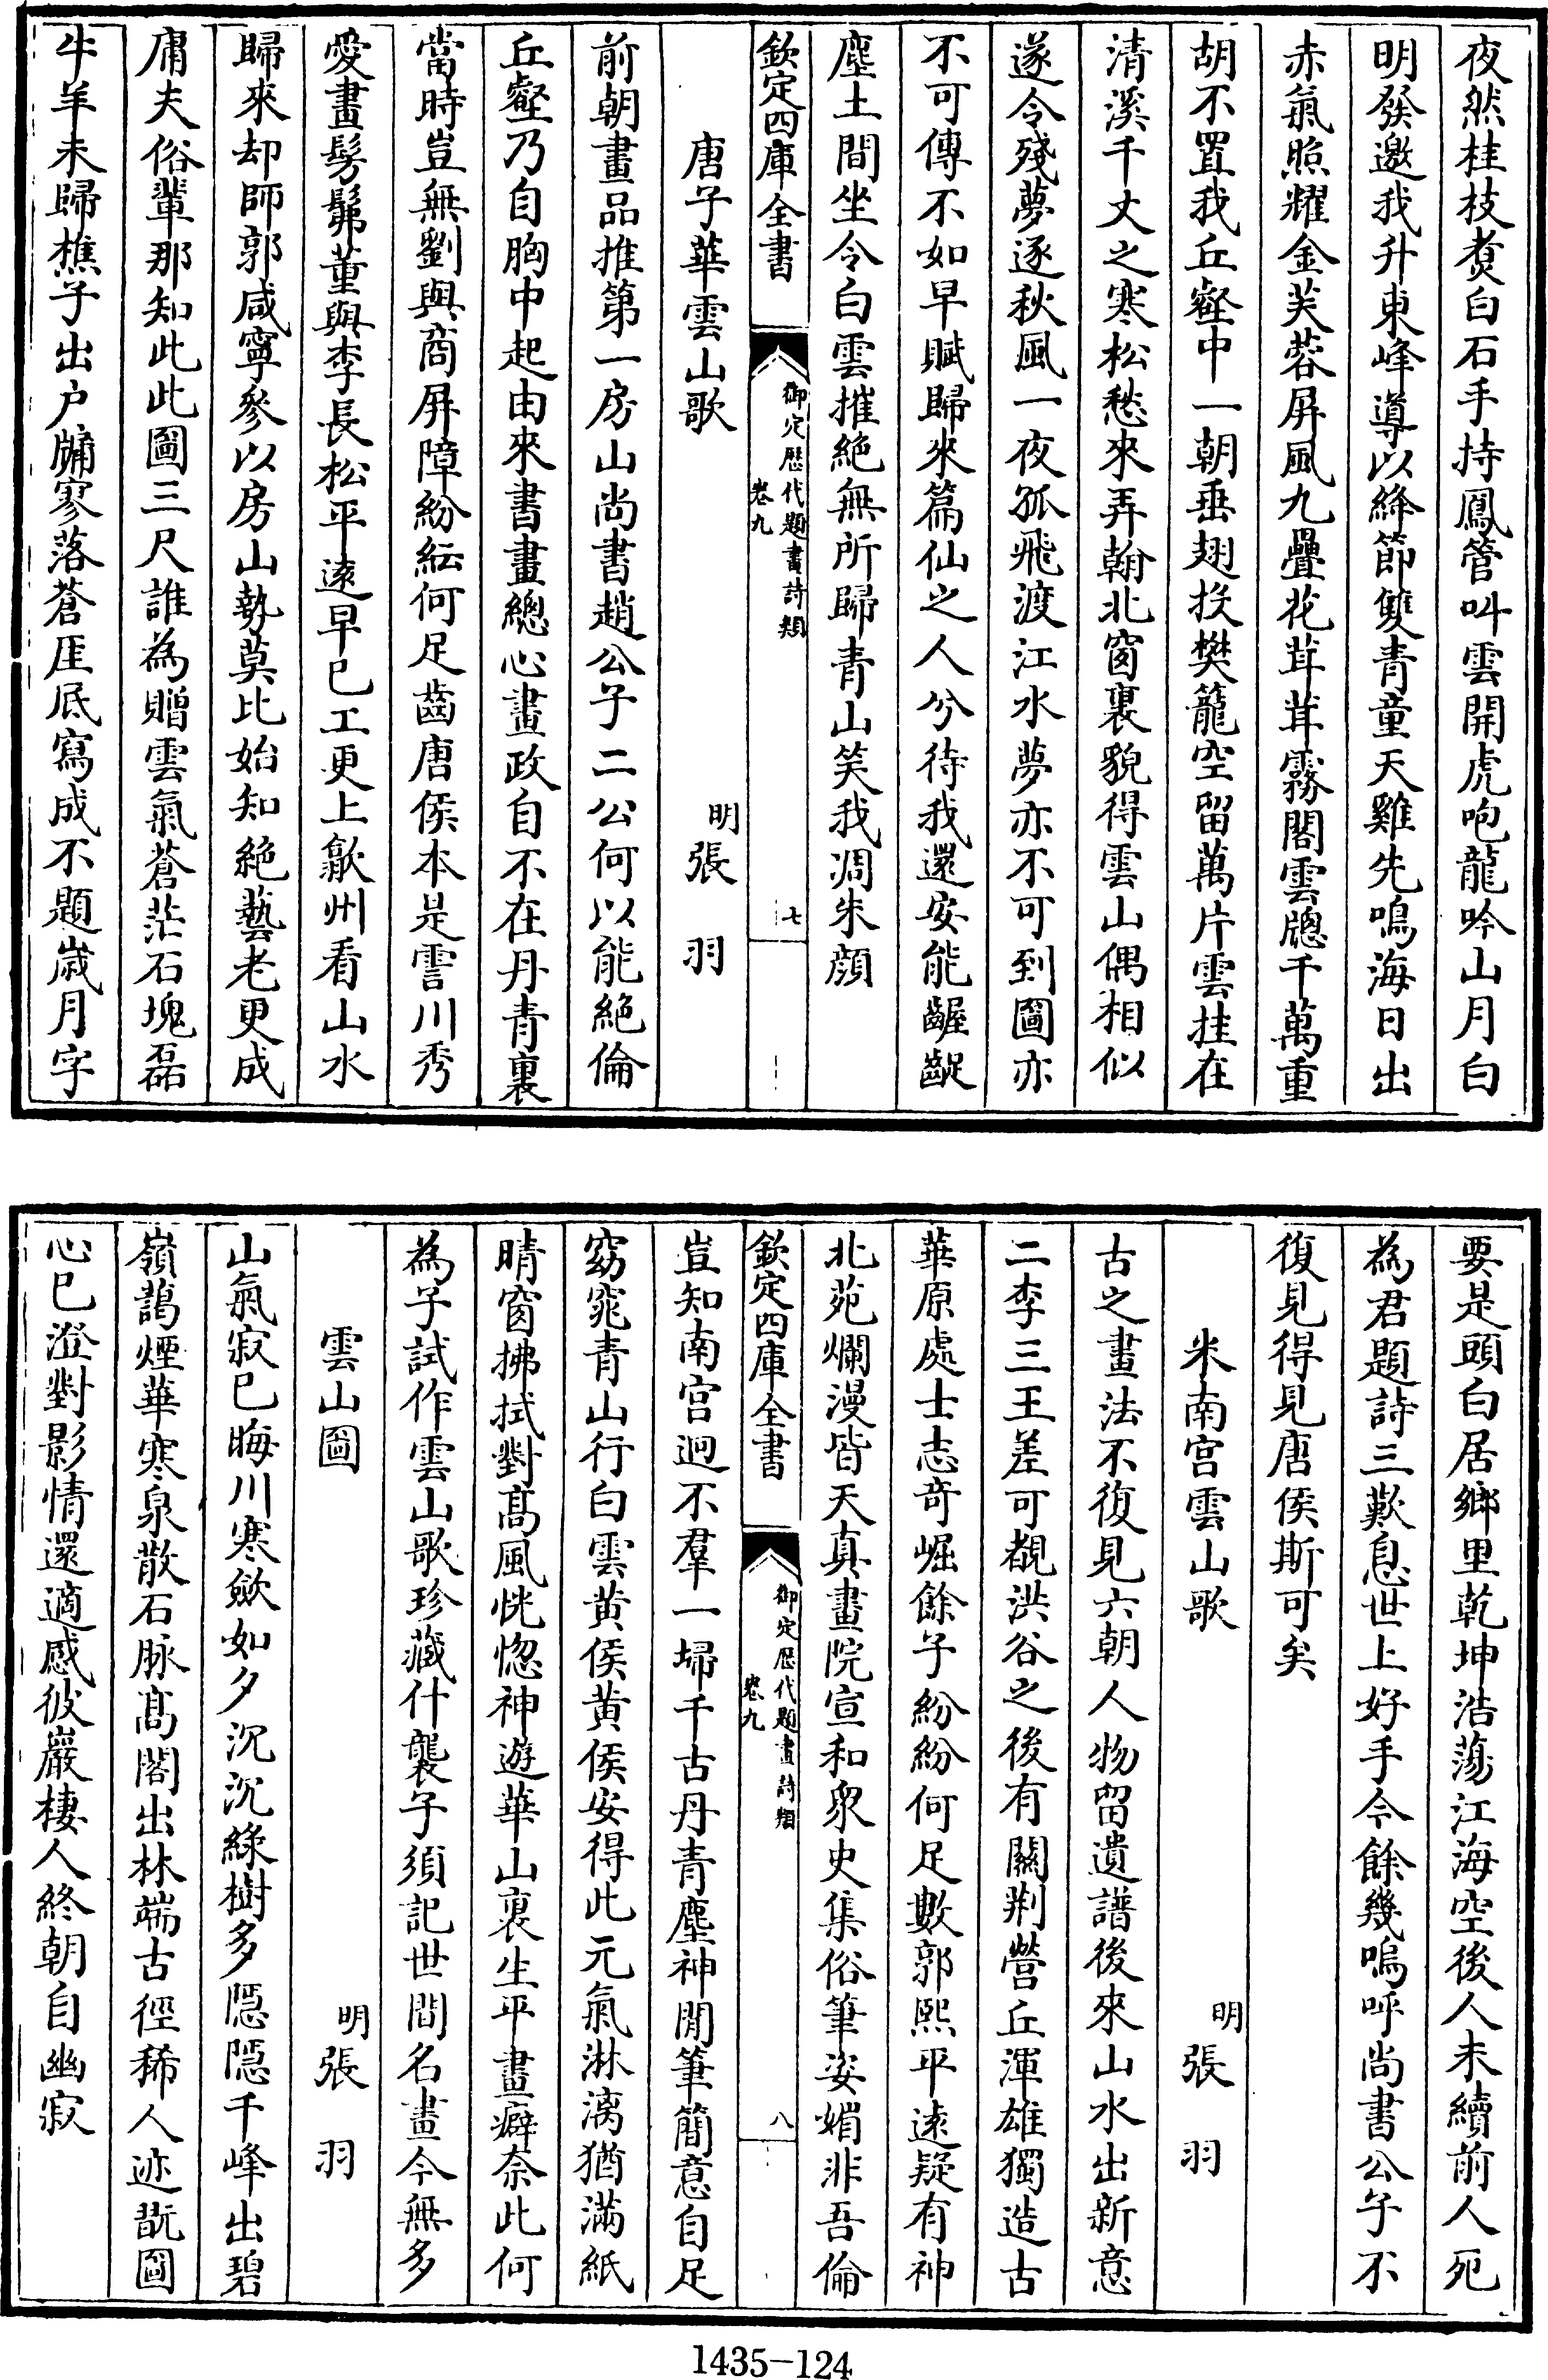 夜然桂枝煑白石手持鳳管叫雲開虎咆龍吟山月白
明發邀我升東峰導以絳節雙青童天雞先鳴海日出
赤氣照耀金芙蓉屏風九疊花茸茸霧閣雲牕千萬重
胡不置我丘壑中一朝垂翅投樊籠空留萬片雲挂在
清溪千丈之寒松愁來弄翰北窗裏貌得雲山偶相似
遂令殘夢逐秋風一夜孤飛渡江水夢亦不可到圖亦
不可傳不如早賦歸來篇仙之人兮待我還安能齷齪
塵土間坐令白雲摧絶無所歸青山笑我凋朱顔
欽定四庫全書
御定歴代題畫詩類
卷九
七
唐子華雲山歌
明張羽
前朝畫品推第一房山尚書趙公子二公何以能絶倫
丘壑乃自胸中起由來書畫總心畫政自不在丹青裏
當時豈無劉與商屏障紛紜何足齒唐侯本是霅川秀
愛畫髣髴董與李長松平逺早已工更上歙州看山水
歸來却師郭咸寧參以房山勢莫比始知絶藝老更成
庸夫俗輩那知此此圖三尺誰為贈雲氣蒼茫石塊磊
牛羊未歸樵子出户牖寥落蒼厓底寫成不題嵗月字
要是頭白居鄉里乾坤浩蕩江海空後人未續前人死
為君題詩三歎息世上好手今餘幾嗚呼尚書公子不
復見得見唐侯斯可矣
米南宫雲山歌
明張羽
古之畫法不復見六朝人物留遺譜後來山水出新意
二李三王差可覩洪谷之後有關荆營丘渾雄獨造古
華原處士志奇崛餘子紛紛何足數郭熙平逺疑有神
北苑爛漫皆天真畫院宣和衆史集俗筆姿媚非吾倫
欽定四庫全書
御定歴代題畫詩類
卷九
八
豈知南宫迥不羣一埽千古丹青塵神閒筆簡意自足
窈窕青山行白雲黄侯黄侯安得此元氣淋漓猶滿紙
晴窗拂拭對髙風恍惚神遊華山裏生平畫癖奈此何
為子試作雲山歌珍藏什襲子須記世間名畫今無多
雲山圖
明張羽
山氣寂已晦川寒斂如夕沉沉綠樹多隠隠千峰出碧
嶺靄煙華寒泉散石脉髙閣出林端古徑稀人迹翫圖
心已澄對影情還適感彼巖棲人終朝自幽寂
1435-124